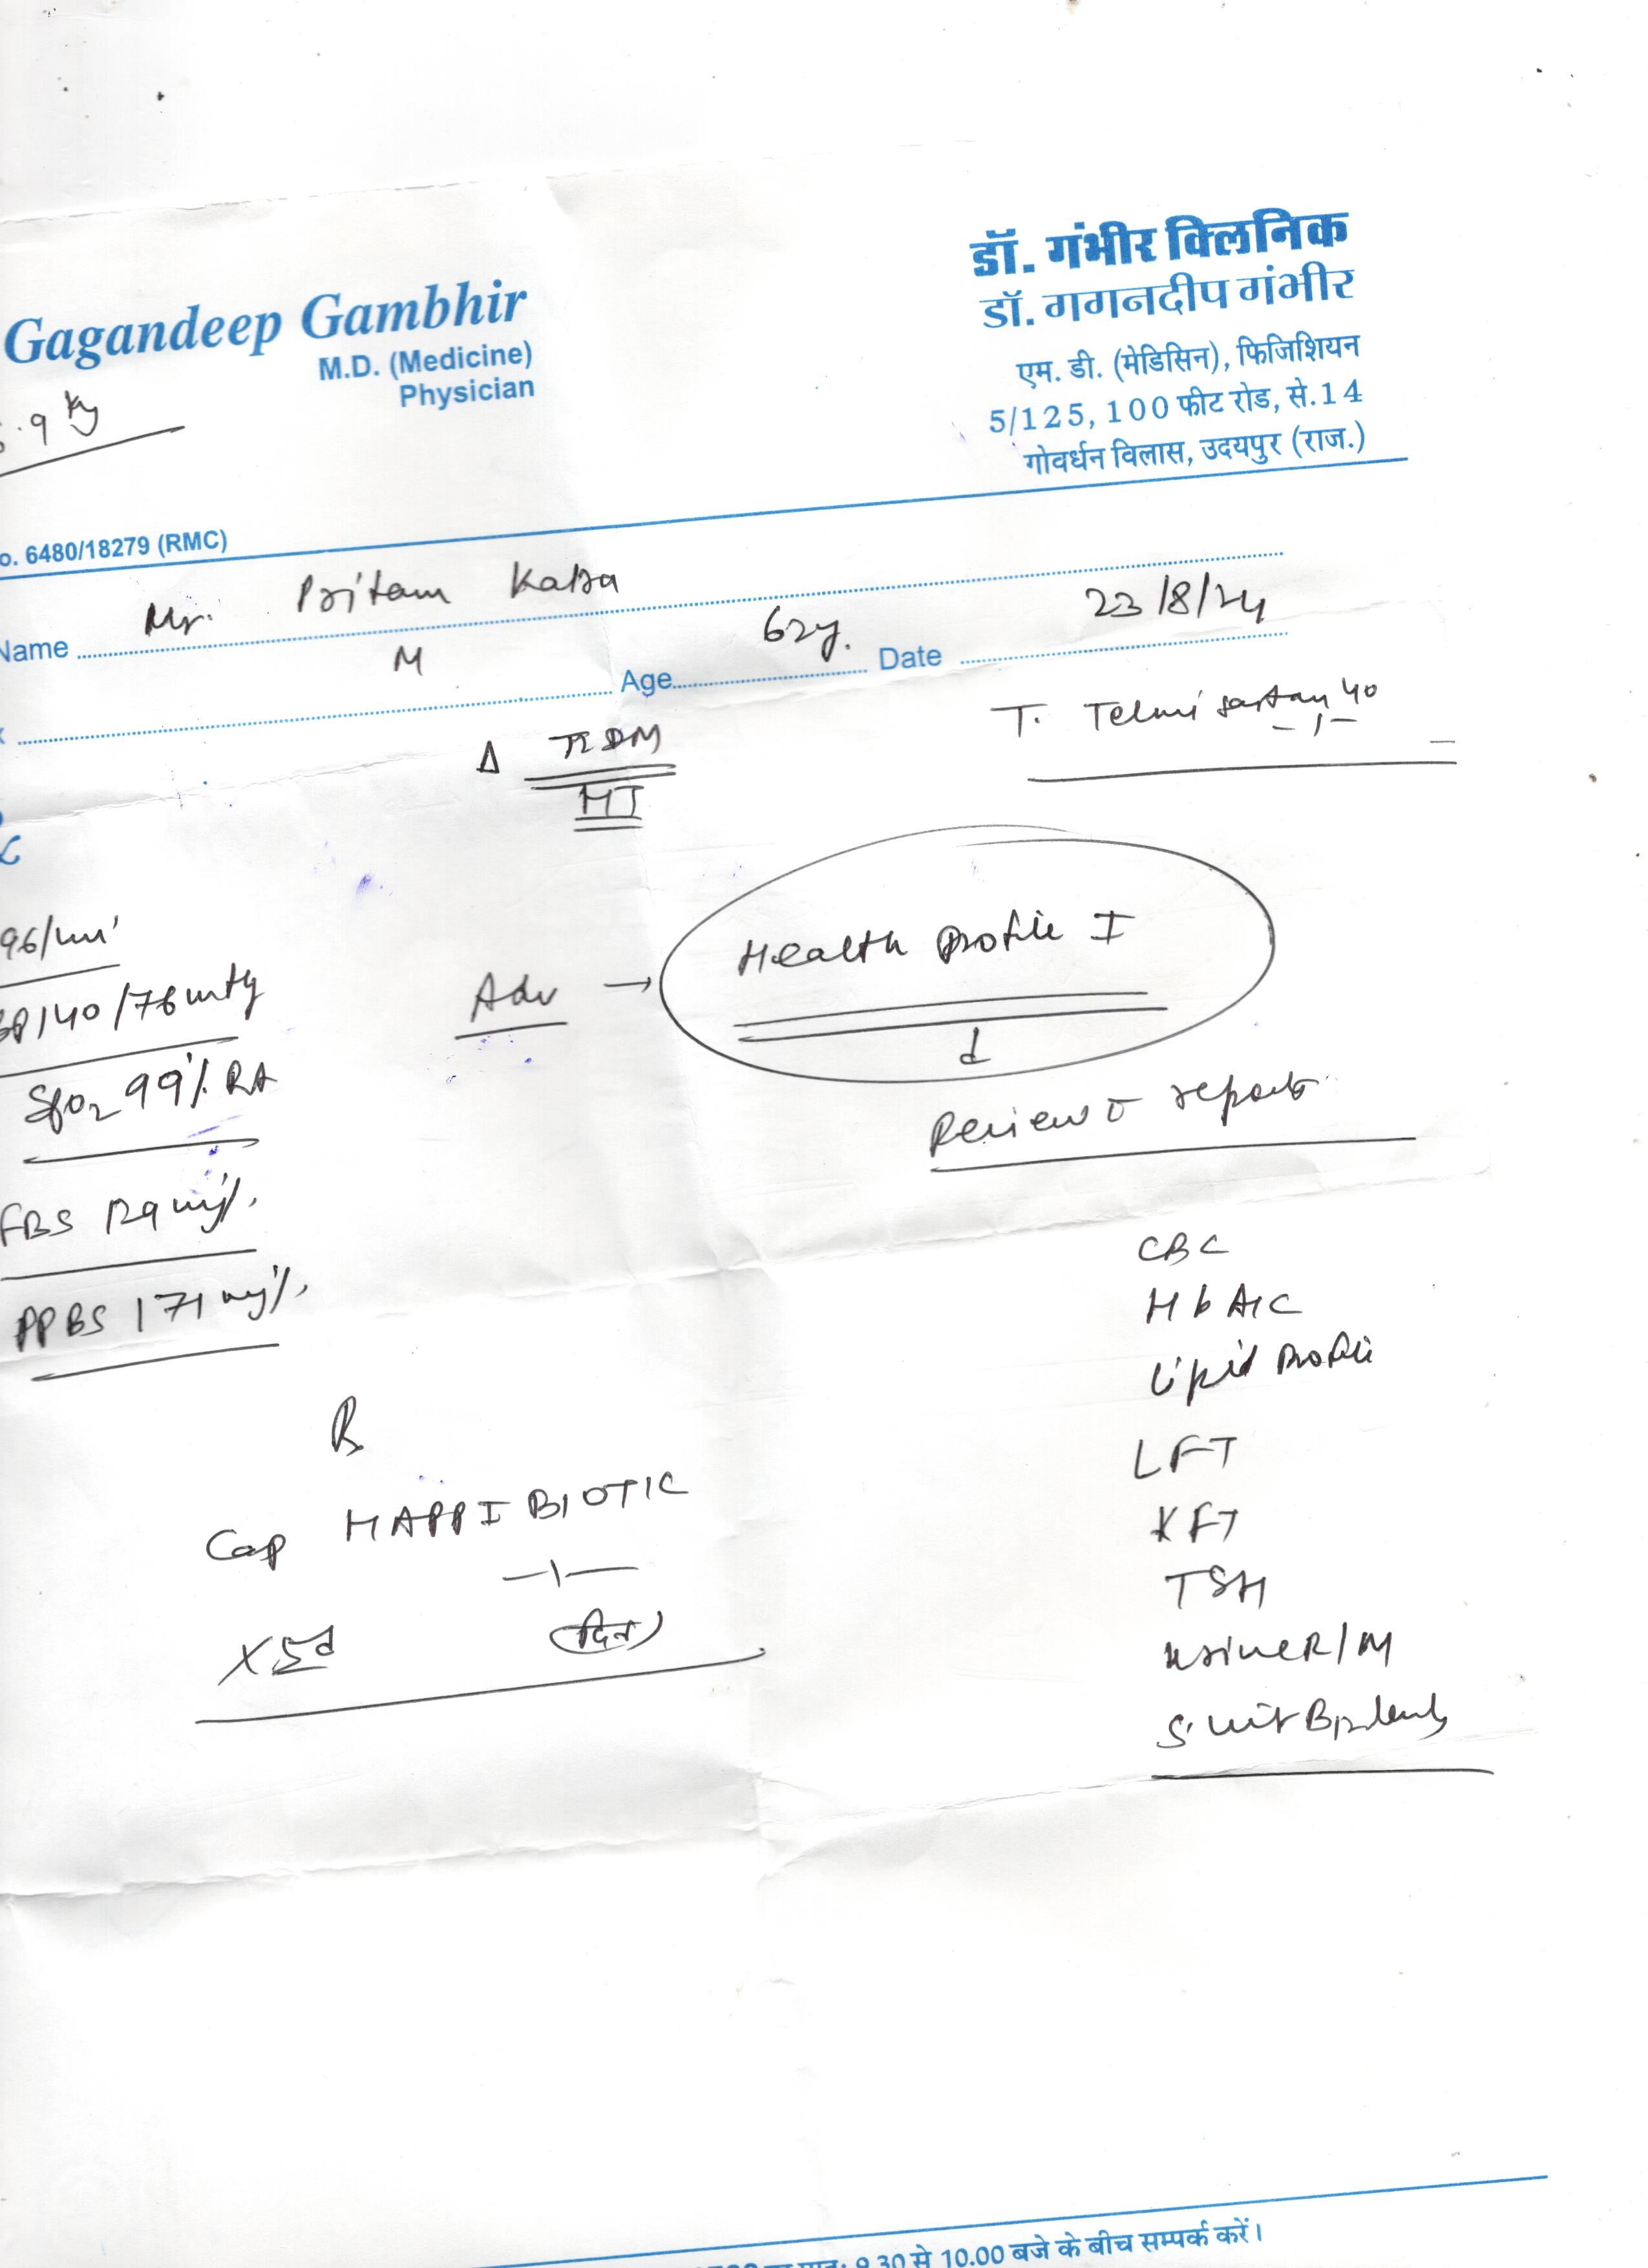 डॉ. गंभीर क्लिनिक
डॉ. गगनदीप गंभीर
एम. डी. (मेडिसिन), फिजिशियन
5/125, 100 फीट रोड, से.14
गोवर्धन विलास, उदयपुर (राज.)
Gagandeep Gambhir
M.D. (Medicine)
Physician
.9 kg
o. 6480/18279 (RMC)
Name Mr. Pritam Kalra
M Age 62y. Date 23/8/24
T. Telmisartan 40
- 1 -
Δ T2DM
HT
96/min
BP 140/76 mmHg
SpO2 99% RA
FBS 129 mg%.
PPBS 171 mg%.
Adv → Health Profile I
Review c reports
CBC
HbA1C
Lipid Profile
LFT
KFT
TSH
Urine R/M
S. Vit B12 levels
R
Cap HAPPI BIOTIC
-1-
X 5d (दिन)
9.30 से 10.00 बजे के बीच सम्पर्क करें।